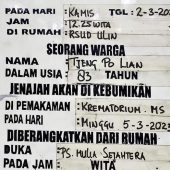 PADA HARI : KAMIS TGL: 2-3-202
JAM : 12.25 WITA
DI RUMAH : RSUD ULIN
SEORANG WARGA
NAMA : TJENG PO LIAN
DALAM USIA : 83 TAHUN
JENAJAH AKAN DI KEBUMIKAN
DI PEMAKAMAN : KREMATORIUM MS
PADA HARI : MINGGU 5-3-202
DIBERANGKATKAN DARI RUMAH
DUKA : PS. MULIA SEJAHTERA
PADA JAM : WITA